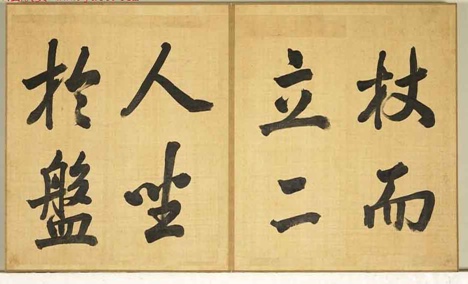 杖而
立二
人坐
於盤